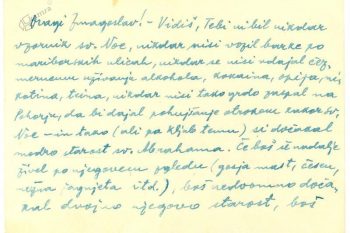 Dragi Zmagoslav! – Vidiš, Tebi ni bil nikdar
vzornik sv. Noe, nikdar nisi vozil barke po
mariborskih ulicah, nikdar se nisi udajal čez-
mernemu uživanju alkohola, kokaina, opija, ni-
kotina, teina, nikdar nisi tako grdo zaspal na
Pohorju, da bi dajal pohujšanje otrokom kakor sv.
Noe – in tako (ali pa kljub temu) si dočakal
modro starost sv. Abrahama. Če boš še nadalje
živel po njegovem pogledu (gosja mast, česen,
jagnjeta itd.), boš nedvomno doča-
kal dvojno njegovo starost, boš